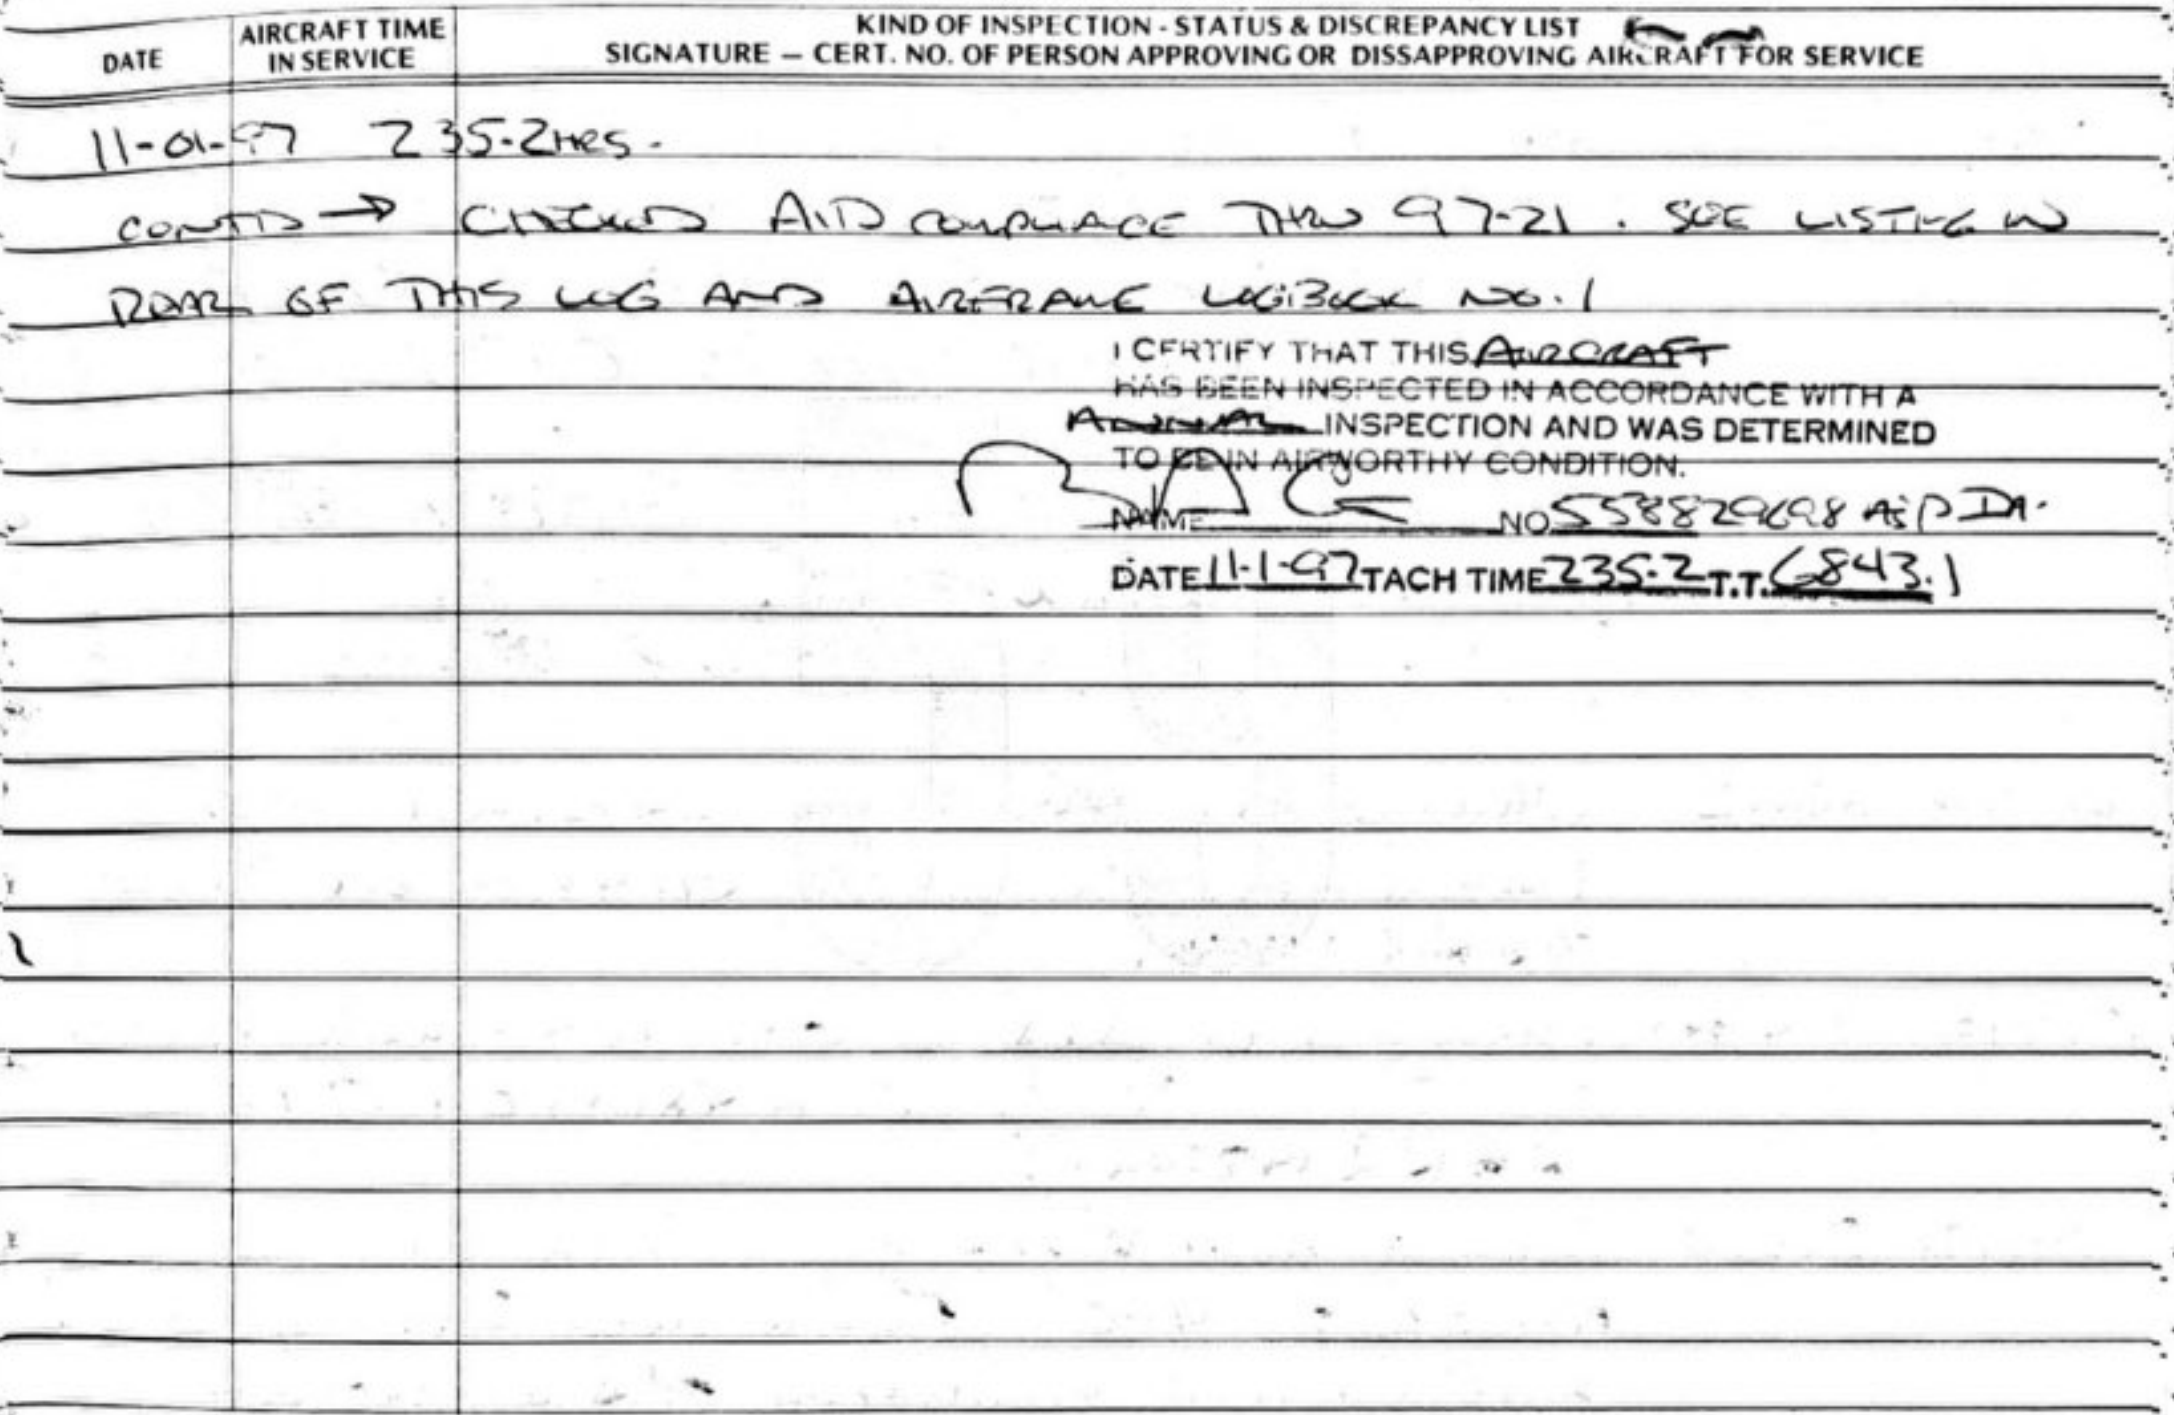 DATE
AIRCRAFT TIME
IN SERVICE
KIND OF INSPECTION - STATUS & DISCREPANCY LIST
SIGNATURE — CERT. NO. OF PERSON APPROVING OR DISSAPPROVING AIRCRAFT FOR SERVICE
11-01-97 235.2HRS.
CONT'D → CHECKED A/D COMPLIANCE THRU 97-21. SEE LISTING IN
REAR OF THIS LOG AND AIRFRAME LOGBOOK NO. 1
I CERTIFY THAT THIS AIRCRAFT
HAS BEEN INSPECTED IN ACCORDANCE WITH A
ANNUAL INSPECTION AND WAS DETERMINED
TO BE IN AIRWORTHY CONDITION.
NAME NO 558829698 A&P IA.
DATE 11-1-97 TACH TIME 235.2 T.T. 6843.1